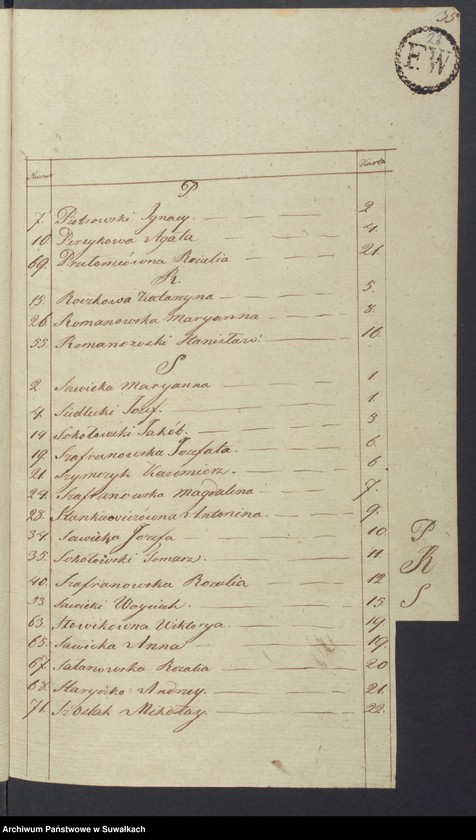 35
28
FW
Numer Karta
P
7. Piotrowski Ignacy. 2
10. Perzykowa Agata 4.
69. Przełomiówna Rozalia 21.
R.
15. Roczkowa Katarzyna 5.
26. Romanowska Maryanna 8.
55. Romanowski Stanisław. 16.
S
2. Sawicka Maryanna 1.
4. Siedlecki Józef. 1.
14. Sokołowski Jakób. 5
19. Szafranowska Józefata. 6.
21. Szymczyk Kazimierz. 6.
24. Szafranowska Magdalena 7.
28. Stankiewiczówna Antonina. 9.
34. Sawicka Józefa 10. P
35. Sokołowski Tomasz. 11. R
40. Szafranowska Rozalia 12
53. Sawicki Woyciech. 15 S
63. Słowikówna Wiktorya. 19.
65. Sawicka Anna 19.
67. Satanowska Rozalia 20
68. Andrzey. 21.
71. Szostak Mikołay. 22.
Archiwum Państwowe w Suwałkach